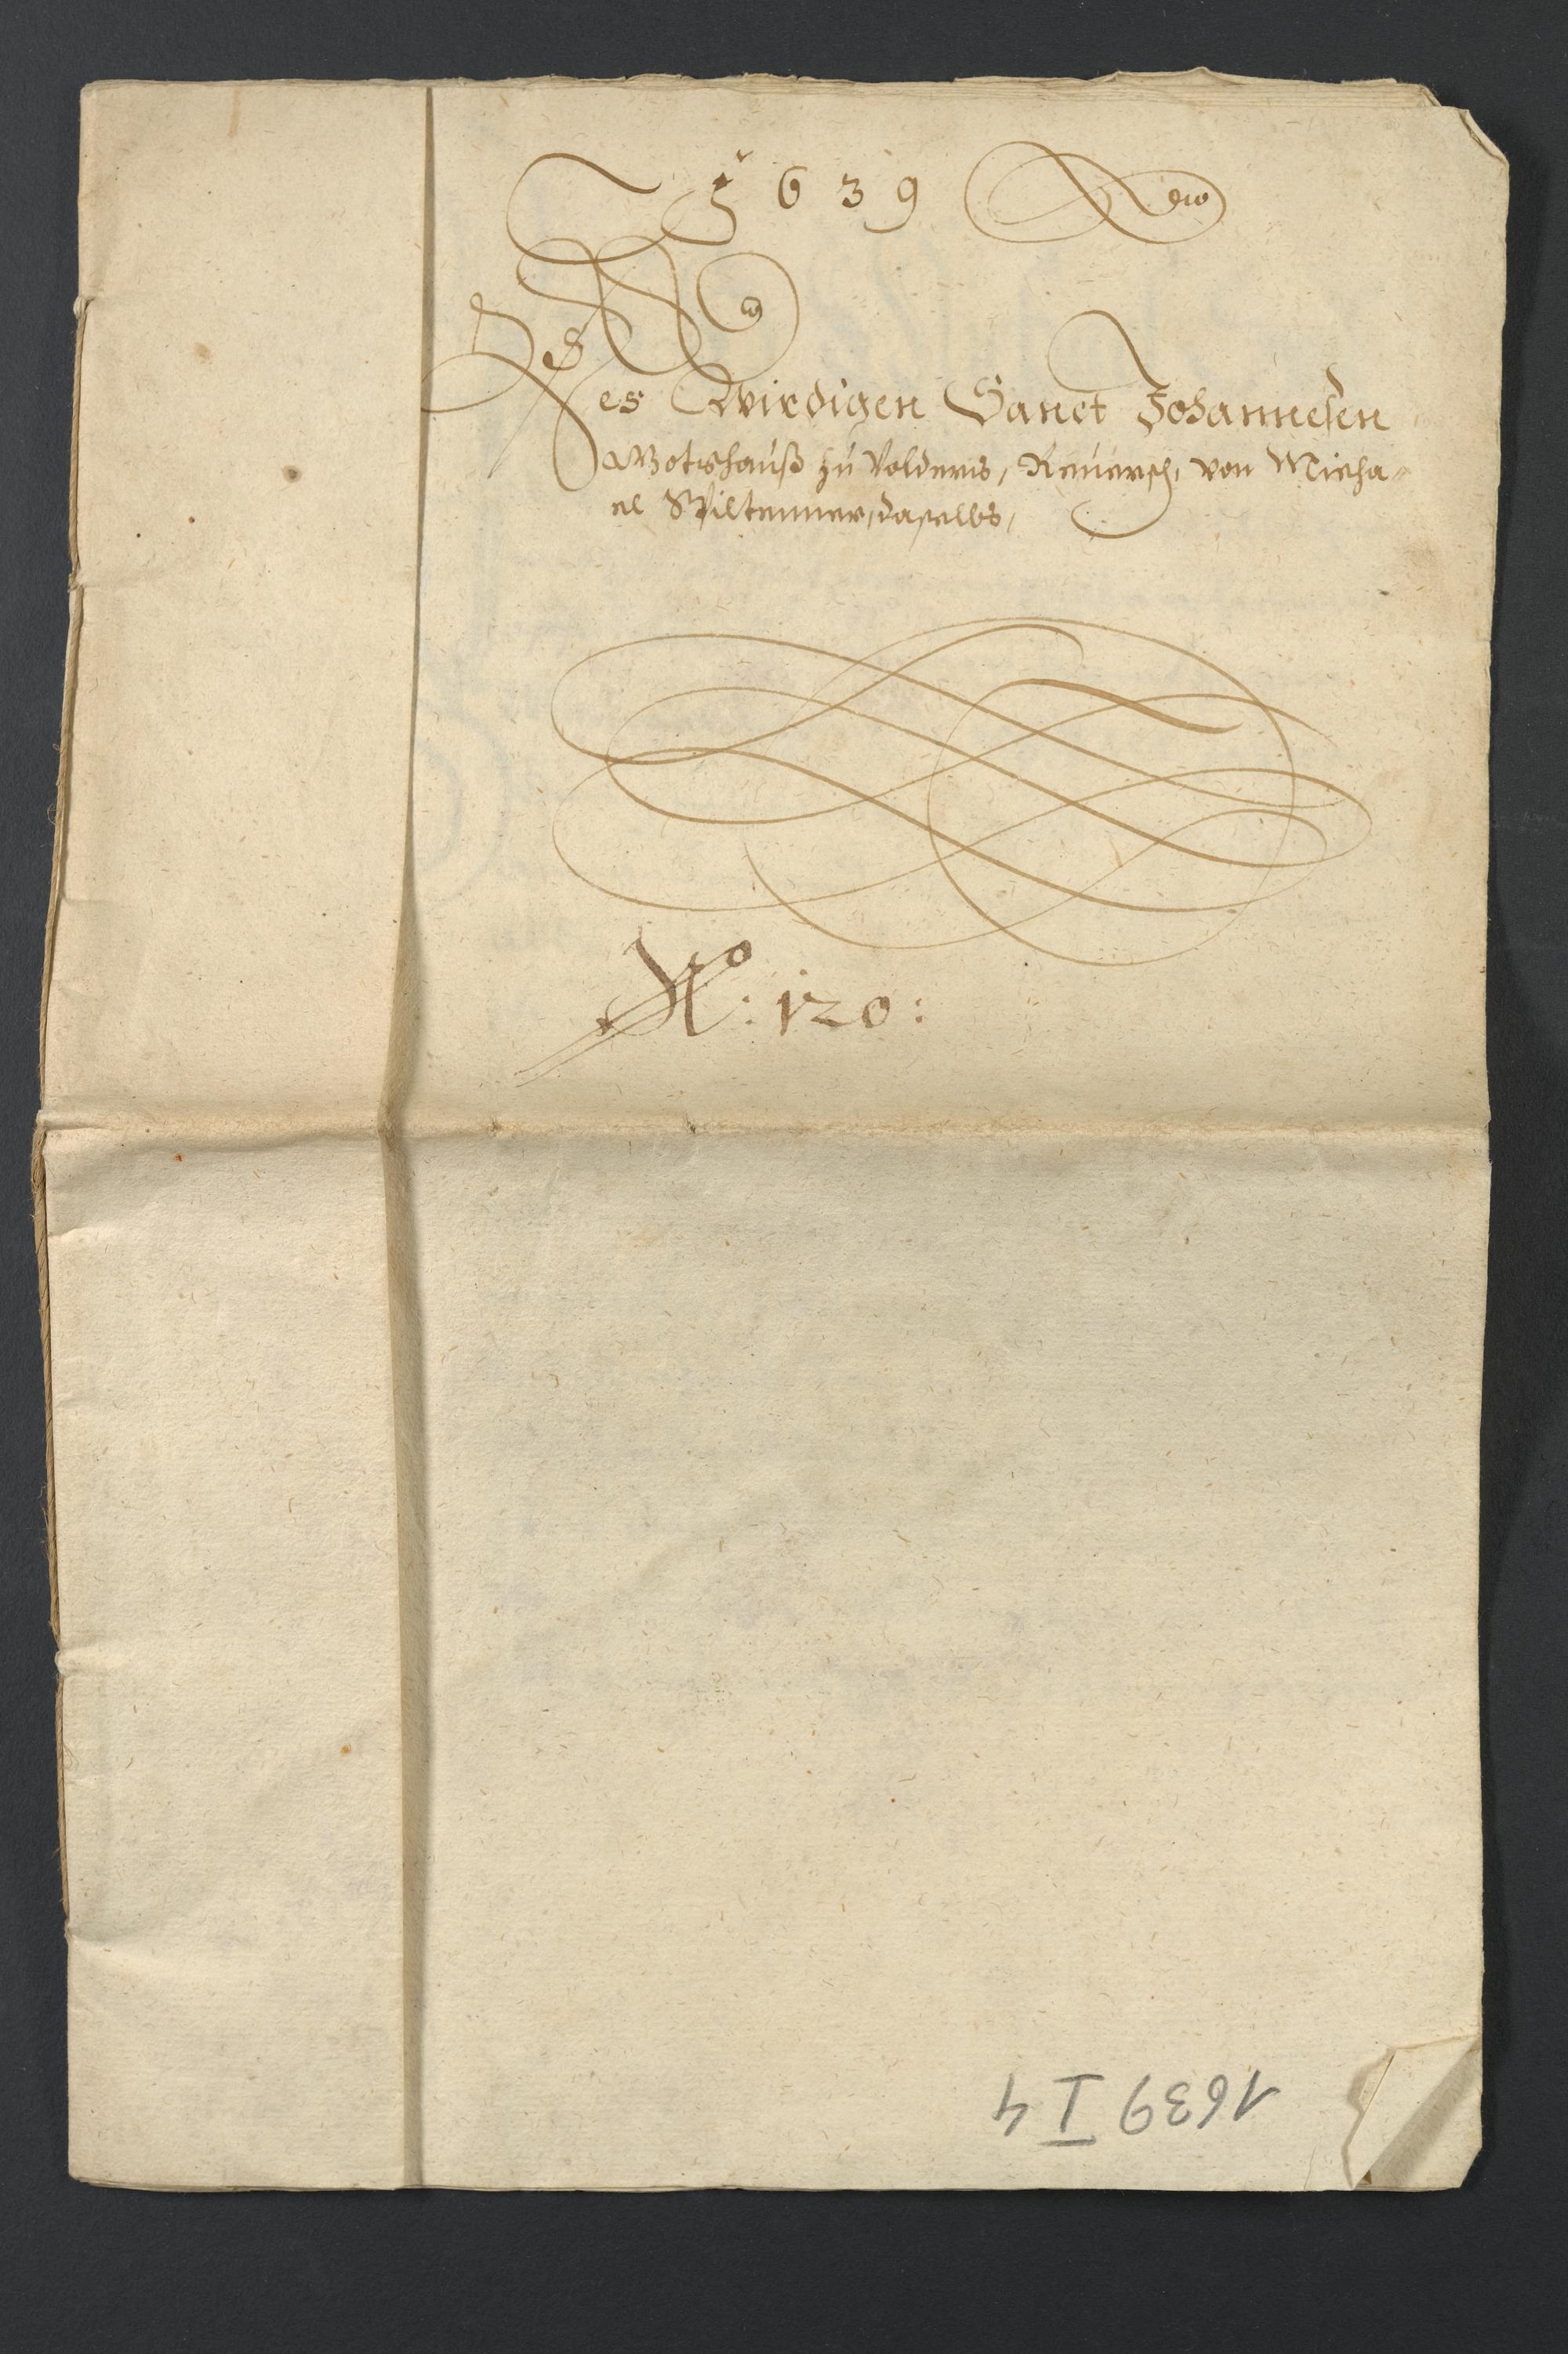 1639
Des Wirdigen Sanct Johannesen
Gotshauß zu Volders, Reuersch, von Micha-
el Spiltenner, daselbs,
No: 120:
1639 I 4